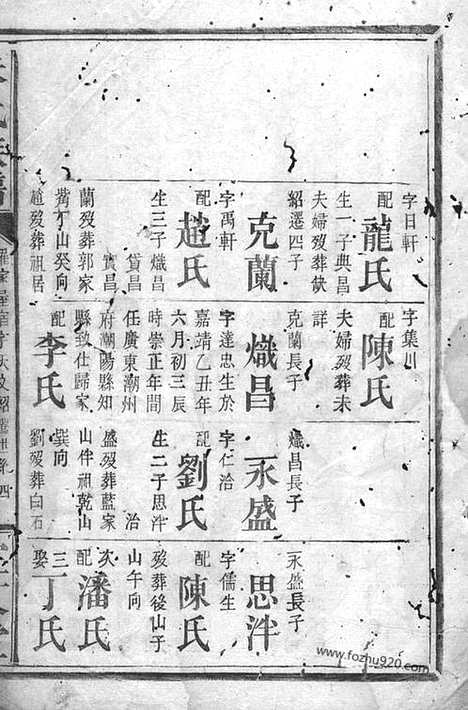 字日軒
配
龍氏
生一子典昌
夫婦歿葬缺
紹遷四子
克蘭
字禹軒
配
趙氏
生三子熾昌
賞昌
寶昌
蘭歿葬郭家
丁山癸向
趙歿葬祖居
字集川
配
陳氏
夫婦歿葬未
詳
克蘭長子
熾昌
字達忠生於
嘉靖乙丑年
六月初三辰
時崇正年間
任廣東潮州
府潮陽縣知
縣致仕歸家
配
李氏
熾昌長子
永盛
字仁治
配
劉氏
生二子思泮
治
盛歿葬藍家
山伴祖乾山
巽向
劉歿葬白石
永盛長子
思泮
字儒生
配
陳氏
歿葬後山子
山午向
次
配
潘氏
三
娶
丁氏
www.fozhu920.com